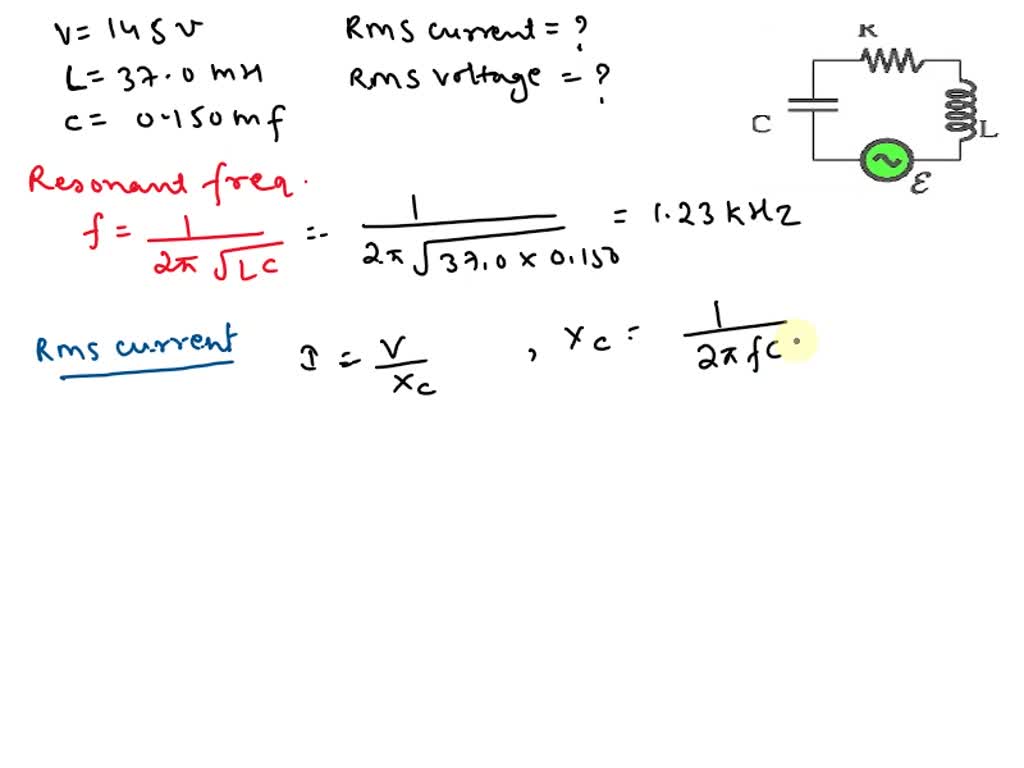 V = 145 V
L = 37.0 mH
C = 0.150 mf
Rms current = ?
Rms voltage = ?
R
C
L
ε
Resonant freq.
f = 1 / 2π √LC = 1 / 2π √37.0 × 0.150 = 1.23 kHz
Rms current I = V / Xc , Xc = 1 / 2π fC